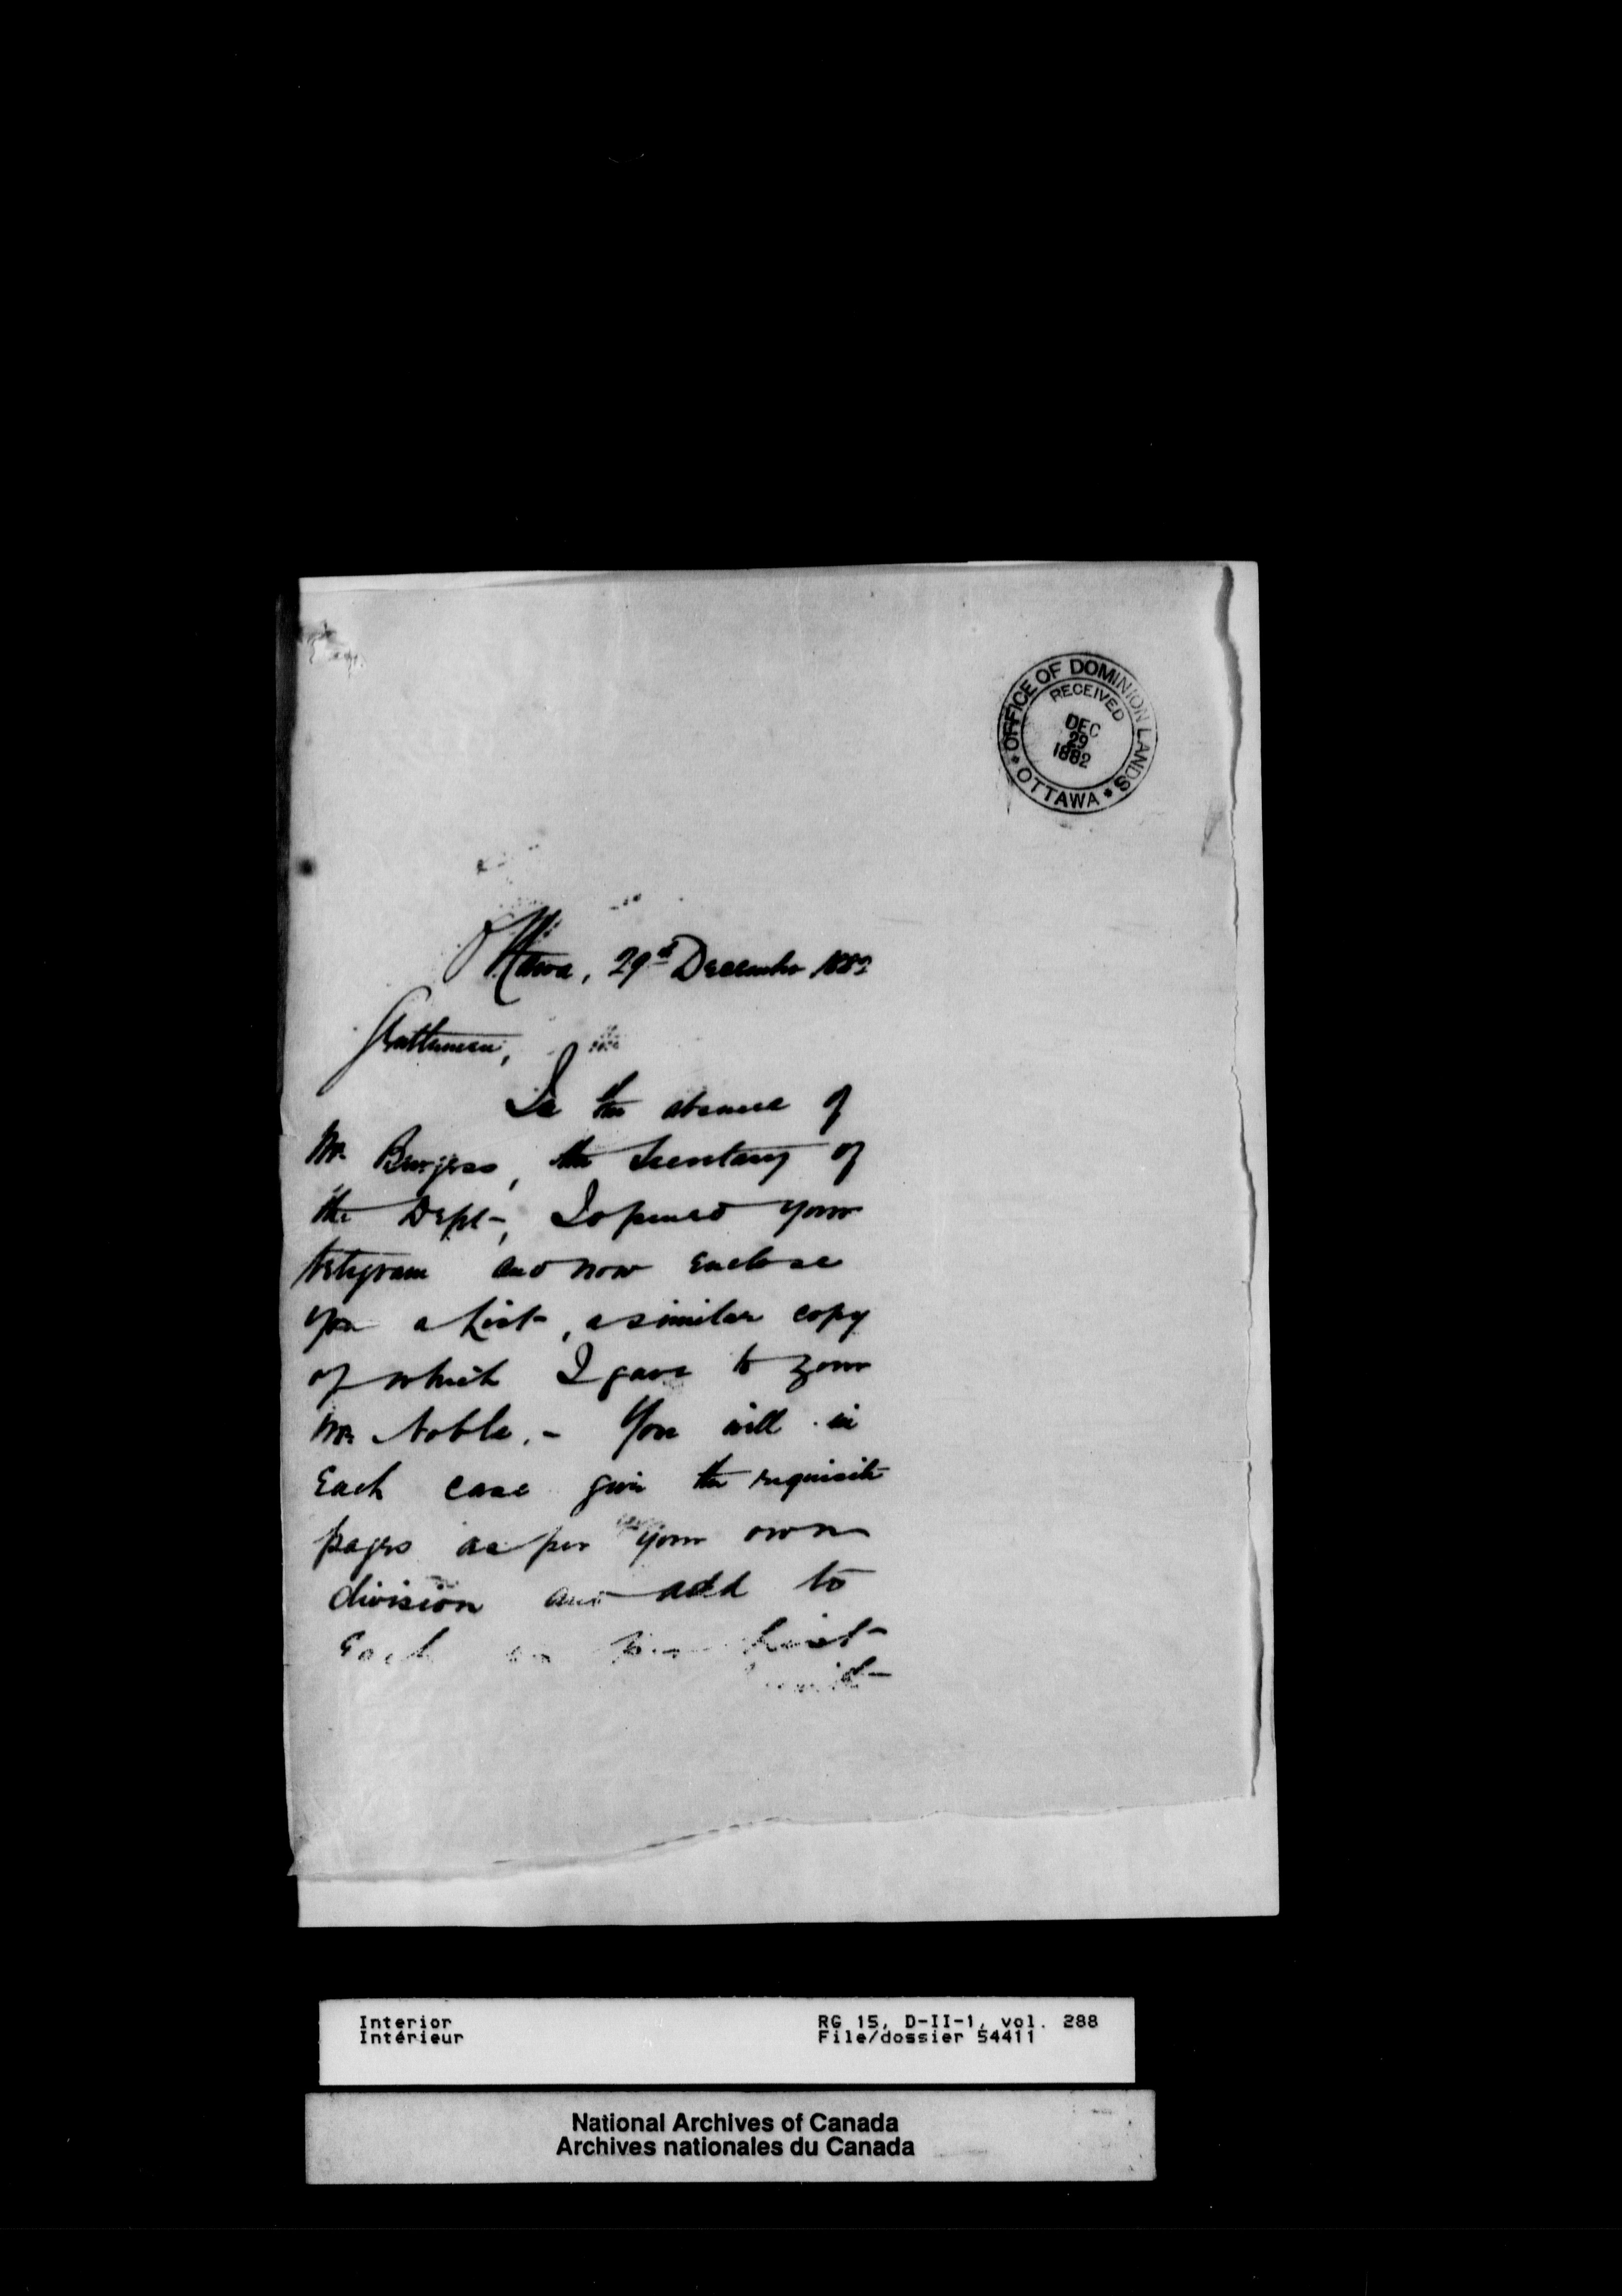 OFFICE OF DOMINION LANDS
RECEIVED
DEC
29
1882
* OTTAWA *
Ottawa, 29th December 1882
Gentlemen,
In the absence of
Mr. Burgess, the Secretary of
the Dept-, I opened your
telegram and now enclose
you a List, a similar copy
of which I gave to your
Mr. Noble. - You will in
Each case give the requisite
pages as per your own
division and add to
Each List
Interior
Intérieur
RG 15, D-II-1, vol. 288
File/dossier 54411
National Archives of Canada
Archives nationales du Canada